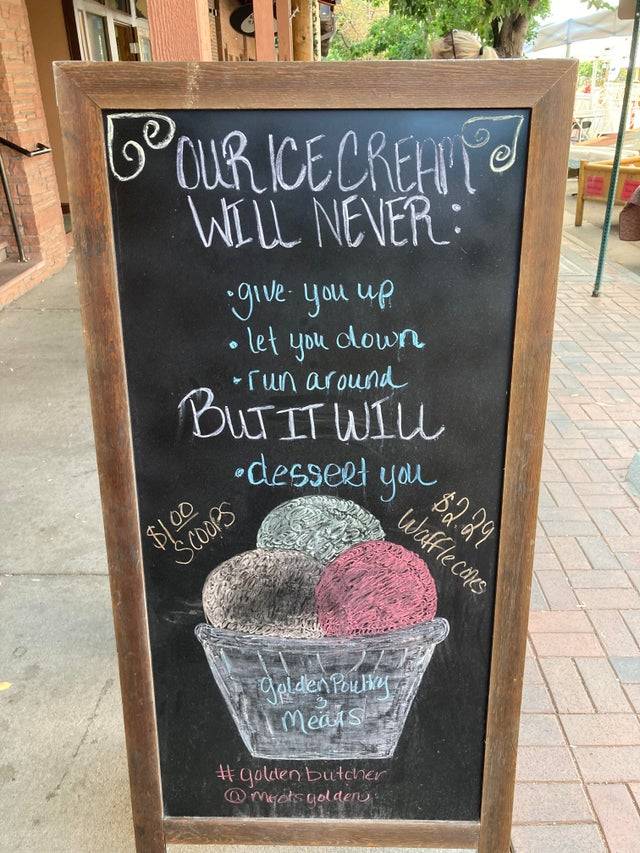 OUR ICE CREAM
WILL NEVER:
•give you up
• let you down
•run around
BUT IT WILL
•dessert you
$1.00
SCOOPS
$2.29
Waffle cones
golden Poultry
&
Meats
#goldenbutcher
@meatsgolden